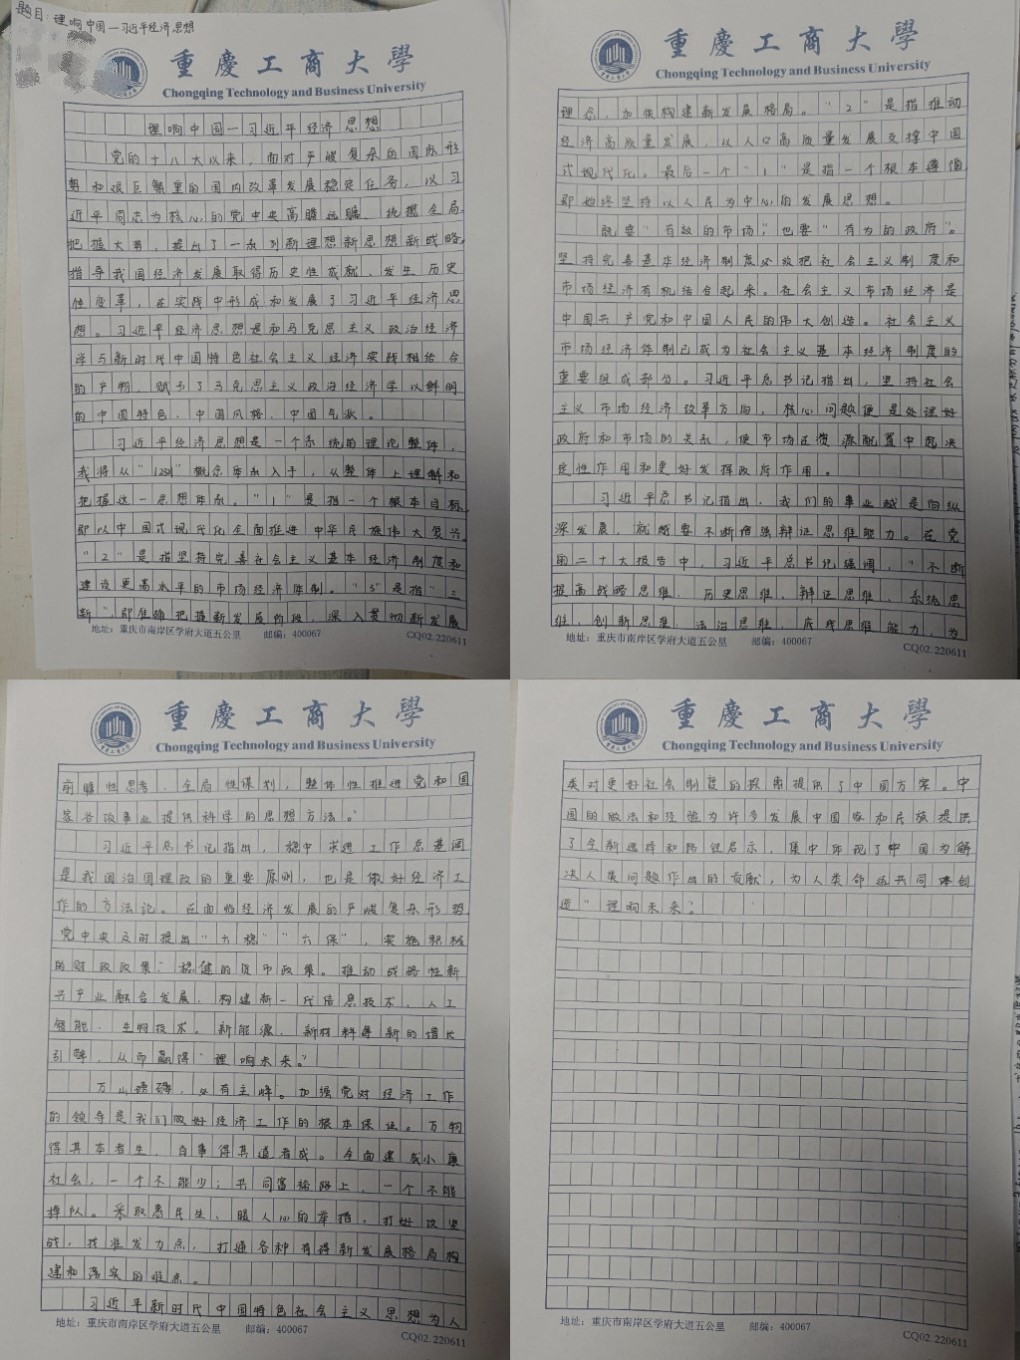 题目：理响中国—习近平经济思想
重慶工商大學
Chongqing Technology and Business University
理响中国—习近平经济思想
党的十八大以来，面对严峻复杂的国际形
势和艰巨繁重的国内改革发展稳定任务，以习
近平同志为核心的党中央高瞻远瞩、统揽全局、
把握大势，提出了一系列新理想新思想新战略，
指导我国经济发展取得历史性成就、发生历史
性变革，在实践中形成和发展了习近平经济思
想。习近平经济思想是和马克思主义政治经济
学与新时代中国特色社会主义经济实践相结合
的产物，赋予了马克思主义政治经济学以鲜明
的中国特色、中国风格、中国气派。
习近平经济思想是一个系统的理论整体，
我将从“1231”概念体系入手，从整体上理解和
把握这一思想体系。“1”是指一个根本目标，
即以中国式现代化全面推进中华民族伟大复兴。
“2”是指坚持完善社会主义基本经济制度和
建设更高水平的市场经济体制。“3”是指“三
新”，即准确把握新发展阶段，深入贯彻新发展
地址：重庆市南岸区学府大道五公里 邮编：400067
CQ02.220611
重慶工商大學
Chongqing Technology and Business University
理念，加快构建新发展格局。“2”是指推动
经济高质量发展，以人口高质量发展支撑中国
式现代化。最后一个“1”是指一个根本遵循
即始终坚持以人民为中心的发展思想。
既要“有效的市场”也要“有为的政府”。
坚持完善基本经济制度必放把社会主义制度和
市场经济有机结合起来。社会主义市场经济是
中国共产党和中国人民的伟大创造。社会主义
市场经济体制已成为社会主义基本经济制度的
重要组成部分。习近平总书记指出，坚持社会
主义市场经济改革方向，核心问题便是处理好
政府和市场的关系，使市场在资源配置中起决
定性作用和更好发挥政府作用。
习近平总书记指出，我们的事业越是向纵
深发展，就越要不断增强辩证思维能力。在党
的二十大报告中，习近平总书记强调，“不断
提高战略思维、历史思维、辩证思维、系统思
维、创新思维、法治思维、底线思维能力，为
地址：重庆市南岸区学府大道五公里 邮编：400067
CQ02.220611
重慶工商大學
Chongqing Technology and Business University
前瞻性思考、全局性谋划，整体性推进党和国
家各改事业提供科学的思想方法。”
习近平总书记指出，稳中求进工作总基调
是我国治国理政的重要原则，也是做好经济工
作的方法论。在面临经济发展的严峻复杂形势，
党中央及时提出“六稳”“六保”，实施积极
的财政政策；稳健的货币政策。推动战略性新
兴产业融合发展，构建新一代信息技术、人工
智能、生物技术、新能源、新材料等新的增长
引擎，从而赢得“理响未来。”
万山磅礴，必有主峰。加强党对经济工作
的领导是我们做好经济工作的根本保证。万物
得其本者生，百事得其道者成。全面建成小康
社会，一个不能少；共同富裕路上，一个不能
掉队。采取惠民生、暖人心的举措，打好攻坚
战，找准发力点，打通各种有碍新发展格局构
建和落实的难点。
习近平新时代中国特色社会主义思想为人
地址：重庆市南岸区学府大道五公里 邮编：400067
CQ02.220611
重慶工商大學
Chongqing Technology and Business University
类对更好社会制度的探索提供了中国方案。中
国的做法和经验为许多发展中国家和民族提供
了全新选择和路径启示，集中体现了中国为解
决人类问题作出的贡献，为人类命运共同体创
造“理响未来”。
地址：重庆市南岸区学府大道五公里 邮编：400067
CQ02.220611